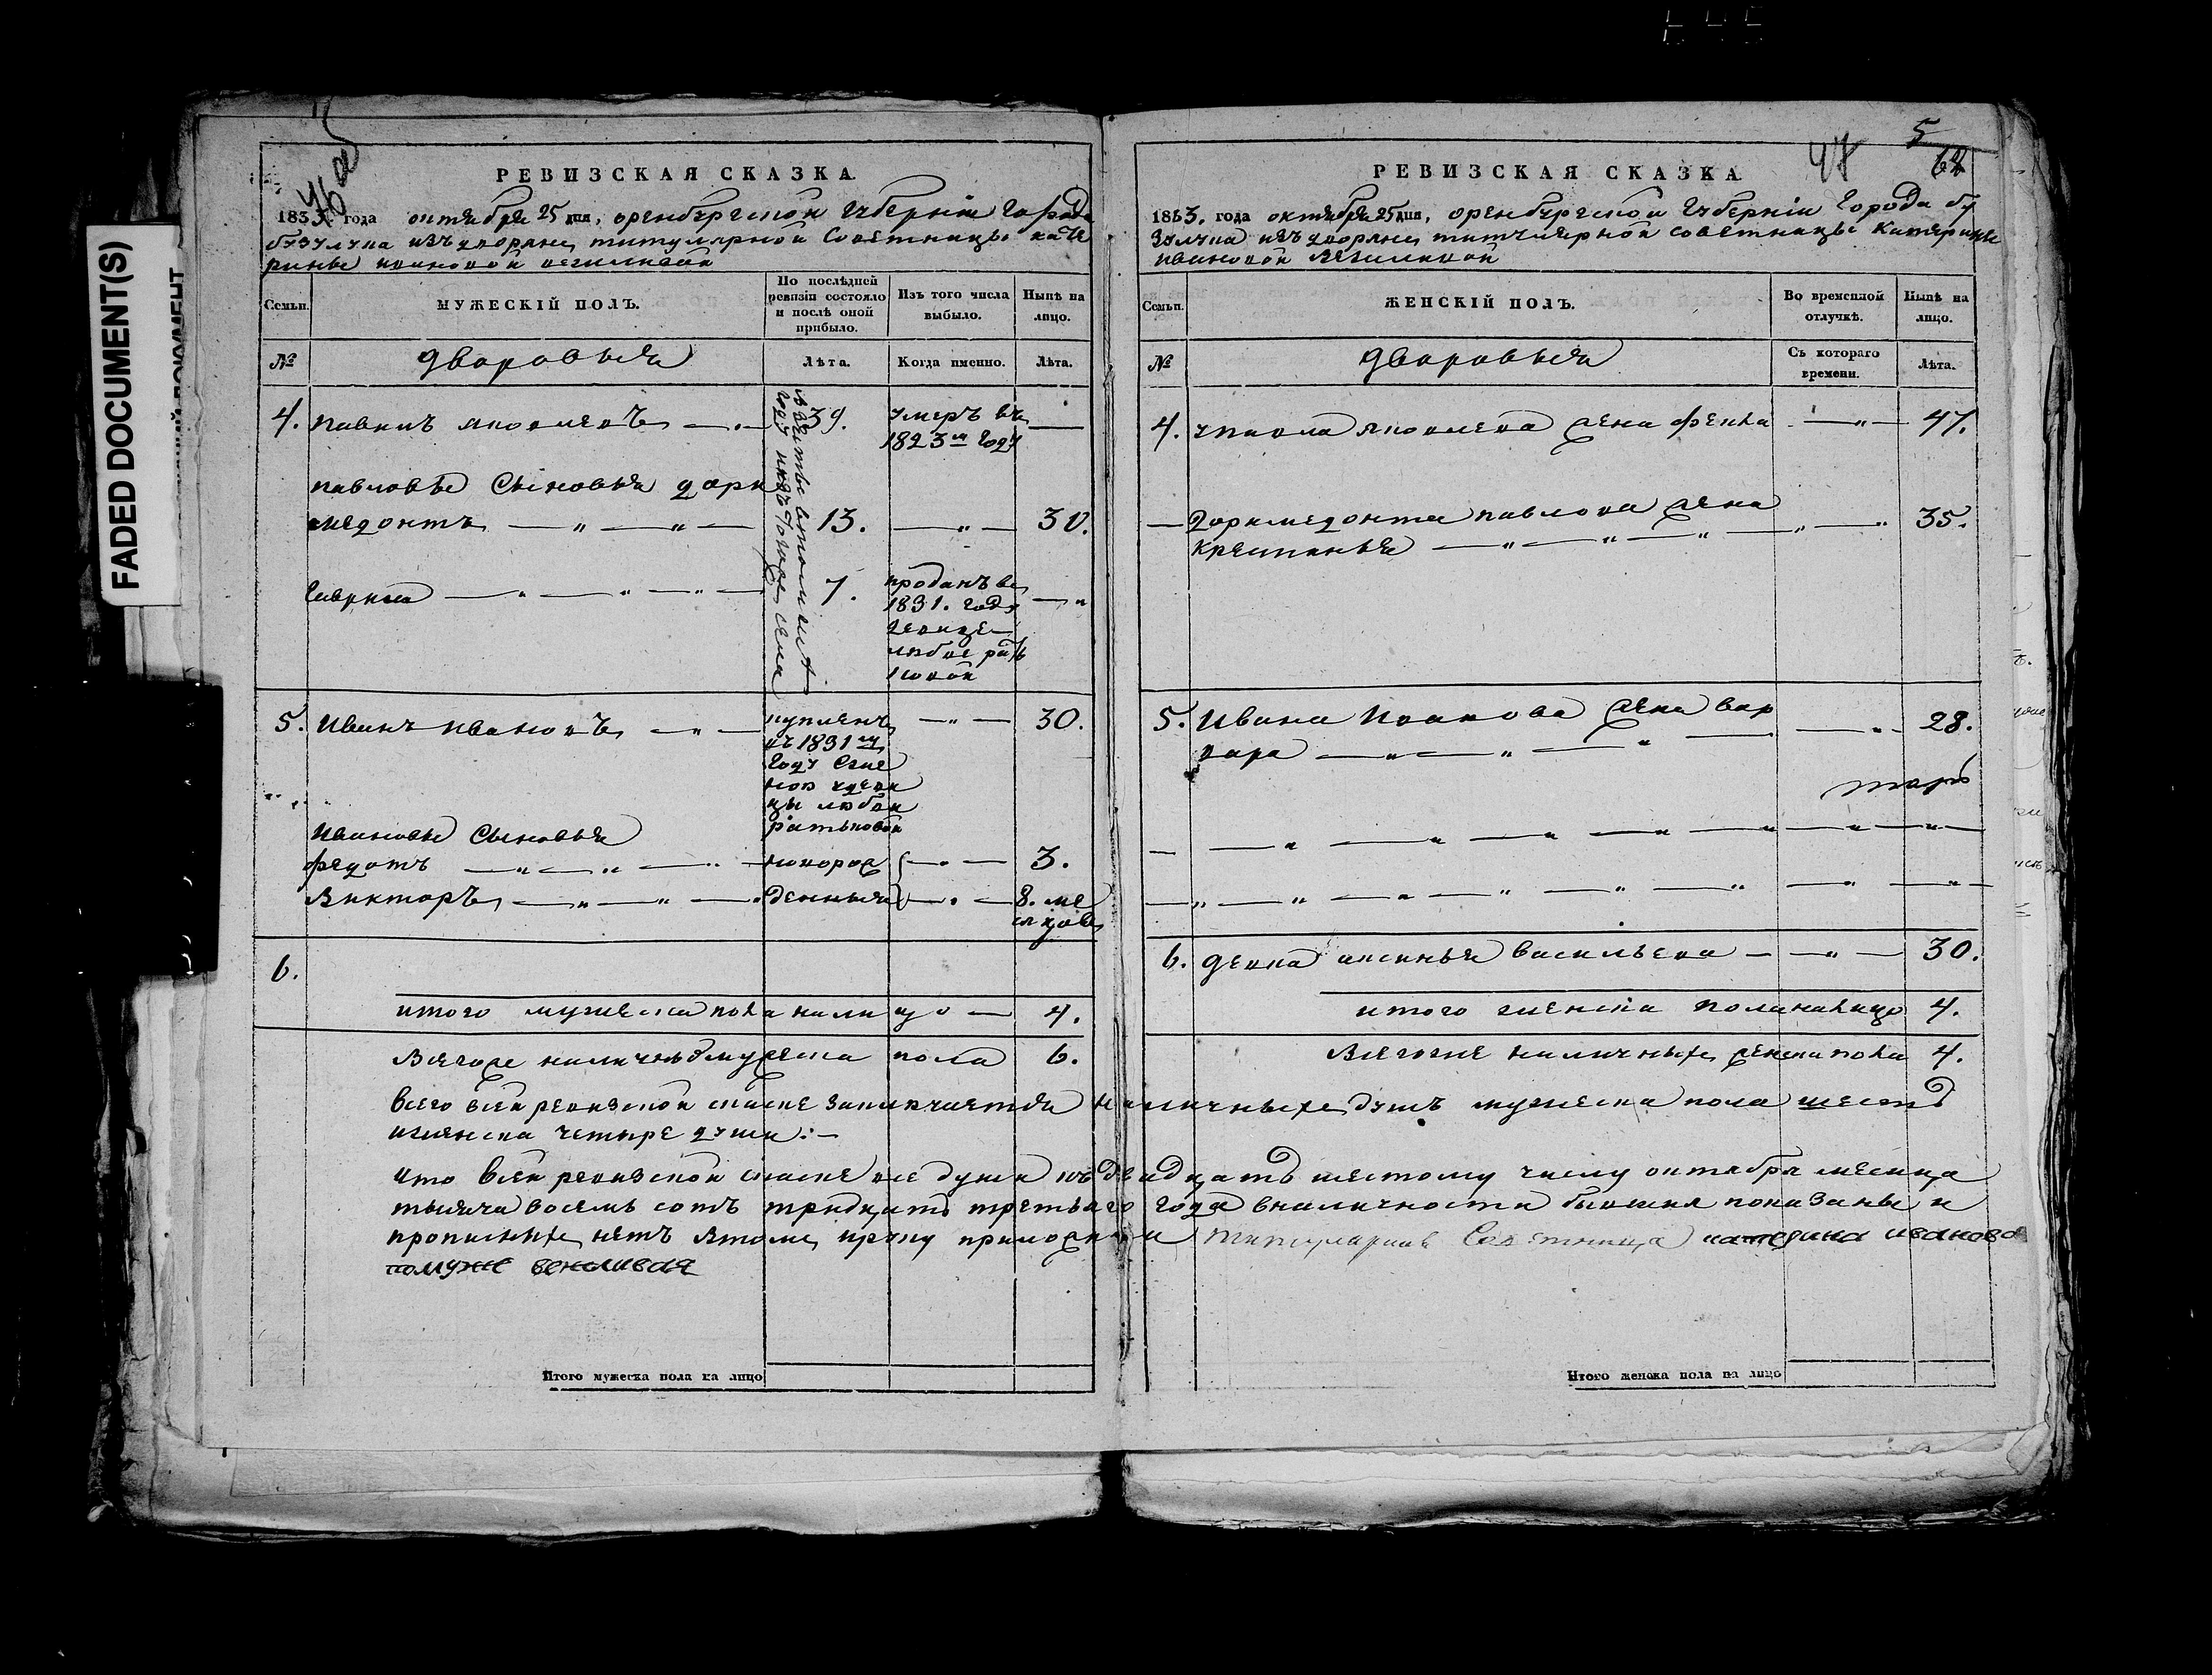 FADED DOCUMENT(S)
46 а
РЕВИЗСКАЯ СКАЗКА
1833. года октября 25 дня, оренбургской губернии города
бузулука изъ дворянъ титулярной советницы кате
рины ивановой
Семьи.
МУЖЕСКІЙ ПОЛЪ.
По послѣдней ревизіи состояло и послѣ оной прибыло.
Изъ того числа выбыло.
Нынѣ на лицо.
№
дворовыя
Лѣта.
Когда именно.
Лѣта.
4. павилъ яковлевъ 39. умеръ въ
1823м году
павловы Сыновья дори
медонтъ 13. 30.
гаврила 7. проданъ въ
1831. году
девице
любве рать
ковой
5. Иванъ Ивановъ купленъ 30.
въ 1831м
году
любви
ратьковой
Ивановы Сыновья
федотъ новорож 3.
Викторъ денныя 8. ме
сяцовъ
6.
итого мужеска пола на лицо 4.
Всегоже наличныхъ мужеска пола 6.
5
47
62
РЕВИЗСКАЯ СКАЗКА
1833. года октября 25 дня, оренбургской губерніи города бу
зулука изъ дворянъ титулярной советницы катерины
ивановой
Семьи.
ЖЕНСКІЙ ПОЛЪ.
Во временной отлучкѣ.
Нынѣ на лицо.
№
дворовыя
Съ котораго времени.
Лѣта.
4. упавла яковлева жена 47.
Доримедонта павлова жена 35.
5. Ивана Иванова жена вар 28.
вара
6. девка аксинья васильева 30.
итого женска пола налицо 4.
Всегоже наличныхъ женска пола 4.
всего всей ревизской сказке заключается наличныхъ душъ мужеска пола шесть
иженска четыре души:
что всей ревизской сказке все души къ двадцать шестому числу октября месяца
тысяча восемь сотъ тридцать третьяго года вналичности бывшия показаны и
прописныхъ нетъ втомъ и руку приложила титулярная Советница катерина иванова
помуже
Итого мужеска пола на лицо
Итого женска пола на лицо